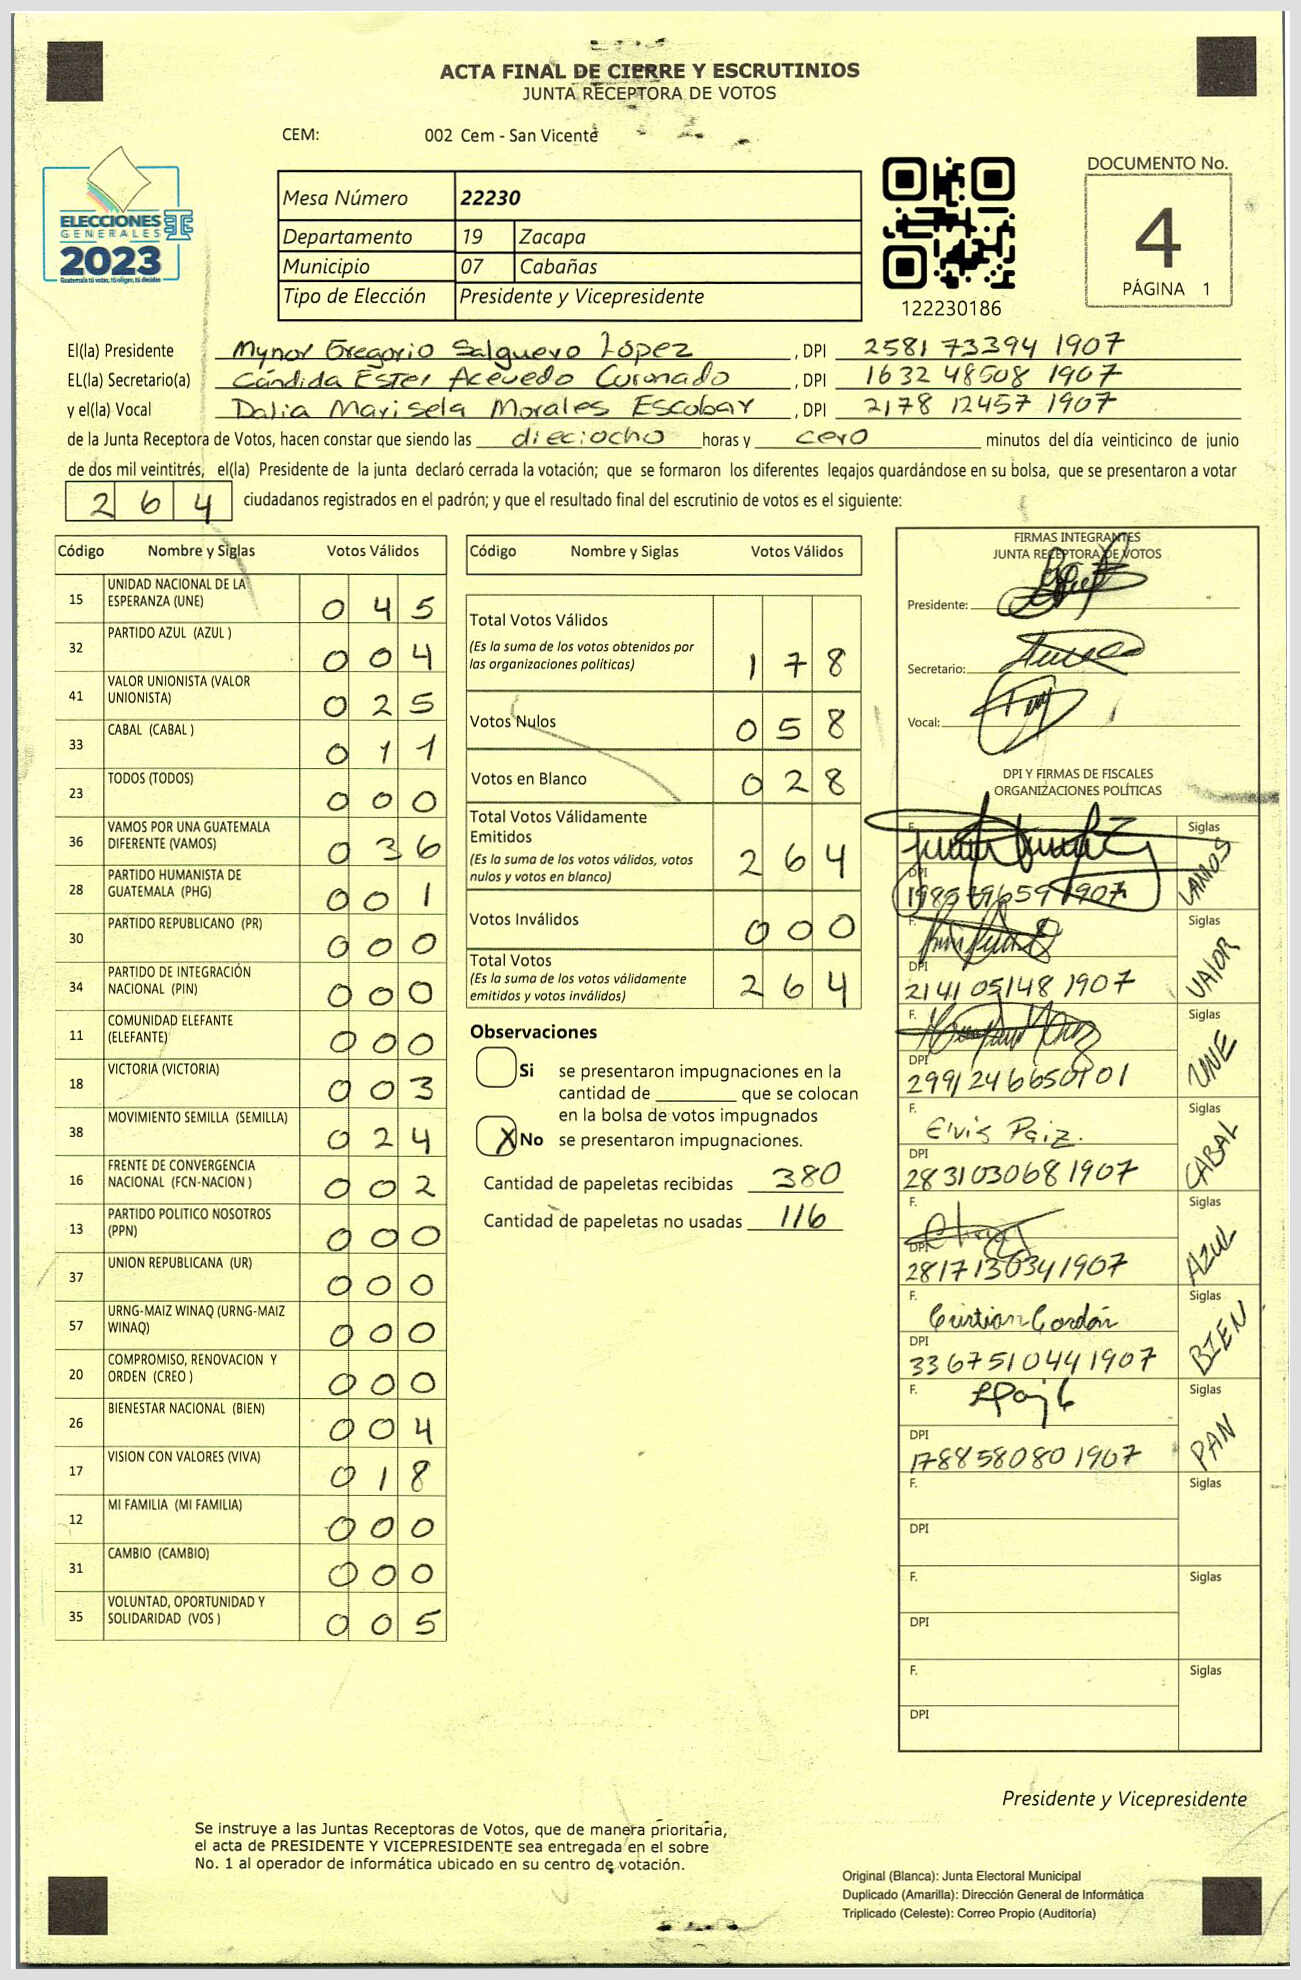 ACTA FINAL DE CIERRE Y ESCRUTINIOS
JUNTA RECEPTORA DE VOTOS
CEM: 002 Cem - San Vicente
ELECCIONES
GENERALES
2023
Guatemala tú votas, tú eliges, tú decides
Mesa Número 22230
Departamento 19 Zacapa
Municipio 07 Cabañas
Tipo de Elección Presidente y Vicepresidente
122230186
DOCUMENTO No.
4
PÁGINA 1
El(la) Presidente Mynor Gregorio Salguero López, DPI 2581 73394 1907
EL(la) Secretario(a) Cándida Ester Acevedo Coronado, DPI 1632 48508 1907
y el(la) Vocal Dalia Marisela Morales Escobar, DPI 2178 12457 1907
de la Junta Receptora de Votos, hacen constar que siendo las dieciocho horas y cero minutos del día veinticinco de junio
de dos mil veintitrés, el(la) Presidente de la junta declaró cerrada la votación; que se formaron los diferentes legajos guardándose en su bolsa, que se presentaron a votar
264 ciudadanos registrados en el padrón; y que el resultado final del escrutinio de votos es el siguiente:
Código Nombre y Siglas Votos Válidos
15 UNIDAD NACIONAL DE LA ESPERANZA (UNE) 045
32 PARTIDO AZUL (AZUL ) 004
41 VALOR UNIONISTA (VALOR UNIONISTA) 025
33 CABAL (CABAL ) 011
23 TODOS (TODOS) 000
36 VAMOS POR UNA GUATEMALA DIFERENTE (VAMOS) 036
28 PARTIDO HUMANISTA DE GUATEMALA (PHG) 001
30 PARTIDO REPUBLICANO (PR) 000
34 PARTIDO DE INTEGRACIÓN NACIONAL (PIN) 000
11 COMUNIDAD ELEFANTE (ELEFANTE) 000
18 VICTORIA (VICTORIA) 003
38 MOVIMIENTO SEMILLA (SEMILLA) 024
16 FRENTE DE CONVERGENCIA NACIONAL (FCN-NACION ) 002
13 PARTIDO POLITICO NOSOTROS (PPN) 000
37 UNION REPUBLICANA (UR) 000
57 URNG-MAIZ WINAQ (URNG-MAIZ WINAQ) 000
20 COMPROMISO, RENOVACION Y ORDEN (CREO ) 000
26 BIENESTAR NACIONAL (BIEN) 004
17 VISION CON VALORES (VIVA) 018
12 MI FAMILIA (MI FAMILIA) 000
31 CAMBIO (CAMBIO) 000
35 VOLUNTAD, OPORTUNIDAD Y SOLIDARIDAD (VOS ) 005
Código Nombre y Siglas Votos Válidos
Total Votos Válidos 178
(Es la suma de los votos obtenidos por
las organizaciones políticas)
Votos Nulos 058
Votos en Blanco 028
Total Votos Válidamente
Emitidos 264
(Es la suma de los votos válidos, votos
nulos y votos en blanco)
Votos Inválidos 000
Total Votos 264
(Es la suma de los votos válidamente
emitidos y votos inválidos)
Observaciones
Si se presentaron impugnaciones en la
cantidad de ________ que se colocan
en la bolsa de votos impugnados
X No se presentaron impugnaciones.
Cantidad de papeletas recibidas 380
Cantidad de papeletas no usadas 116
FIRMAS INTEGRANTES
JUNTA RECEPTORA DE VOTOS
Presidente:
Secretario:
Vocal:
DPI Y FIRMAS DE FISCALES
ORGANIZACIONES POLÍTICAS
F. Siglas VAMOS
DPI
F. Siglas VALOR
DPI 2141 05148 1907
F. Siglas UNE
DPI 2991246650101
F. Elvis Paiz. Siglas CABAL
DPI 2831030681907
F. Siglas AZUL
DPI 2817130341907
F. Cristian Cordón Siglas BIEN
DPI 3367510441907
F. Siglas PAN
DPI 1788580801907
F. Siglas
DPI
F. Siglas
DPI
F. Siglas
DPI
Presidente y Vicepresidente
Se instruye a las Juntas Receptoras de Votos, que de manera prioritaria,
el acta de PRESIDENTE Y VICEPRESIDENTE sea entregada en el sobre
No. 1 al operador de informática ubicado en su centro de votación.
Original (Blanca): Junta Electoral Municipal
Duplicado (Amarilla): Dirección General de Informática
Triplicado (Celeste): Correo Propio (Auditoría)